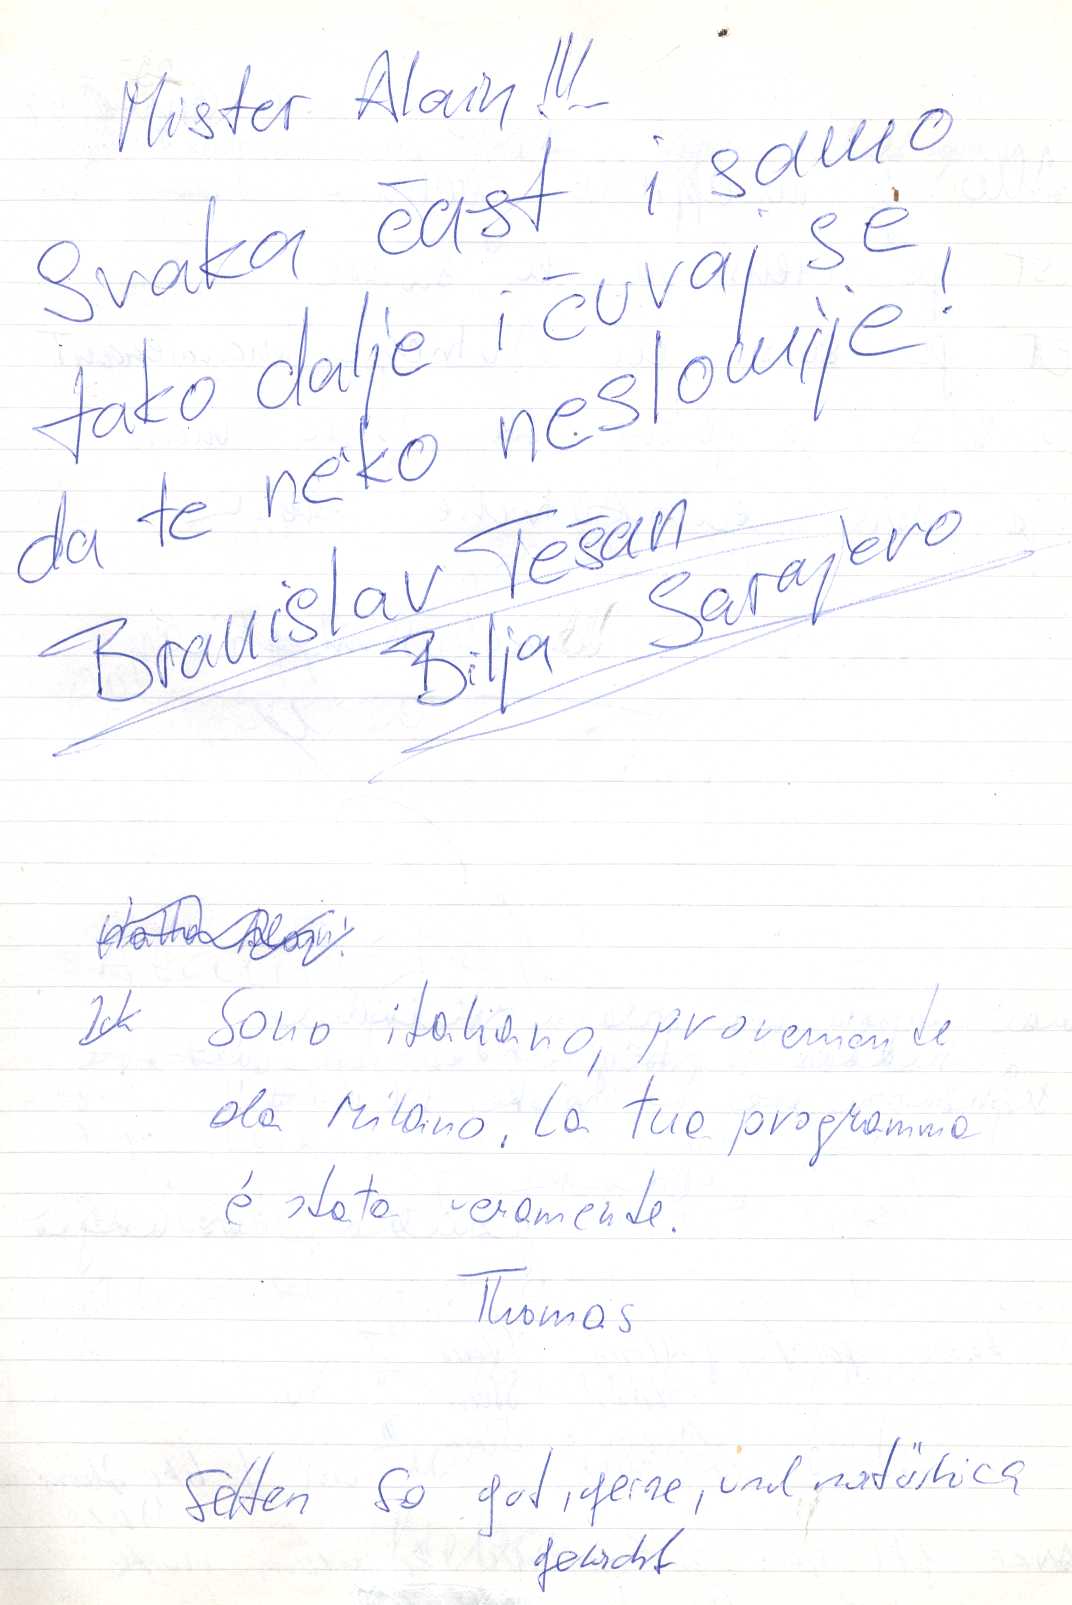 Mister Alain!!!
Svaka čast i samo
tako dalje i čuvaj se
da te neko neslomije!
Branislav Tešan
Bilja Sarajevo
Sono italiano, proveniente
da Milano. La tua programma
é stata veramente.
Thomas
Selten so gut, gerne, und natürlich
gelacht